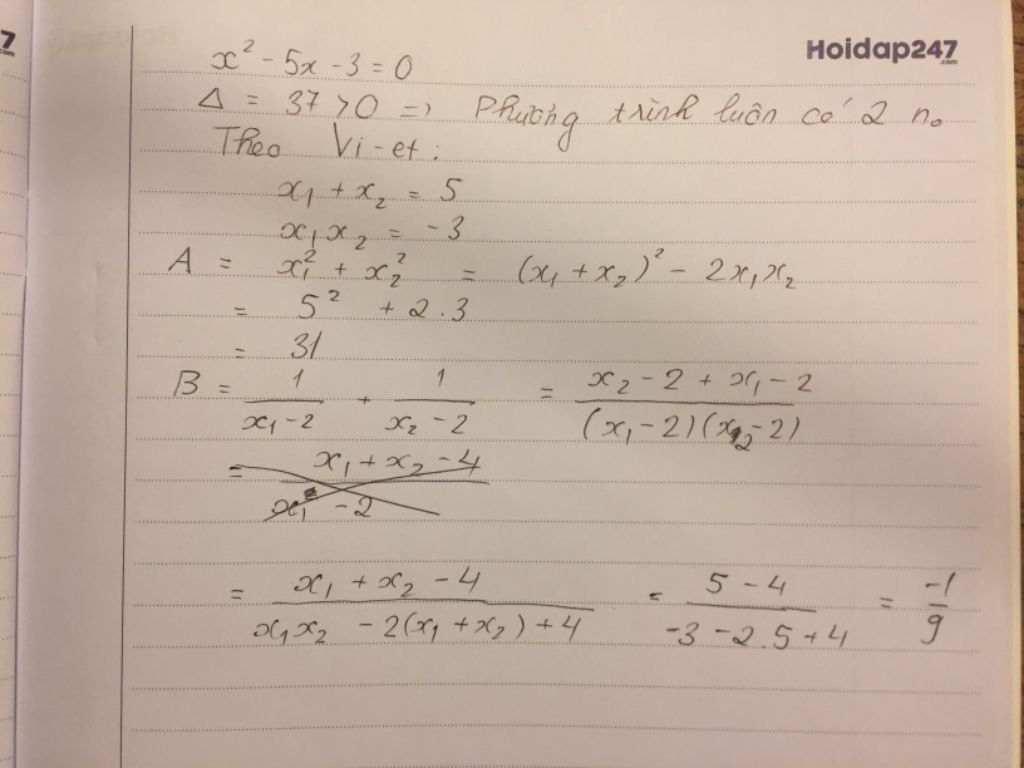 7
.com
Hoidap247
.com
x² - 5x - 3 = 0
Δ = 37 > 0 => Phương trình luôn có 2 no
Theo Vi-et:
x₁ + x₂ = 5
x₁x₂ = -3
A = x₁² + x₂² = (x₁ + x₂)² - 2x₁x₂
= 5² + 2.3
= 31
B = 1/(x₁ - 2) + 1/(x₂ - 2) = (x₂ - 2 + x₁ - 2)/((x₁ - 2)(x₂ - 2))
= (x₁ + x₂ - 4)/(x₁ - 2)
= (x₁ + x₂ - 4)/(x₁x₂ - 2(x₁ + x₂) + 4) = (5 - 4)/(-3 - 2.5 + 4) = -1/9